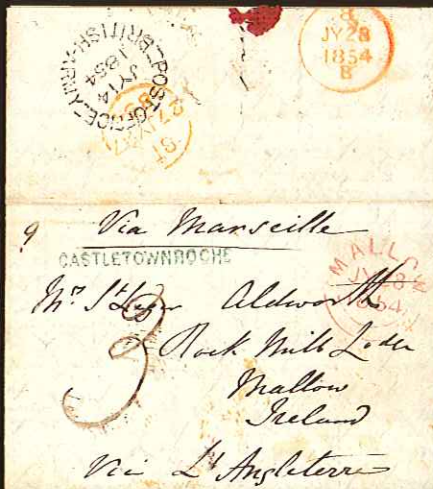 POST-OFFICE-
BRITISH-ARMY
JY 14
1854
JY 28
1854
B
9 Via Marseille
CASTLETOWNROCHE
MALLOW
JY 28
1854
Mrs St Leger Aldworth
3
Rock Mill Lodge
Mallow
Ireland
Via L'Angleterre